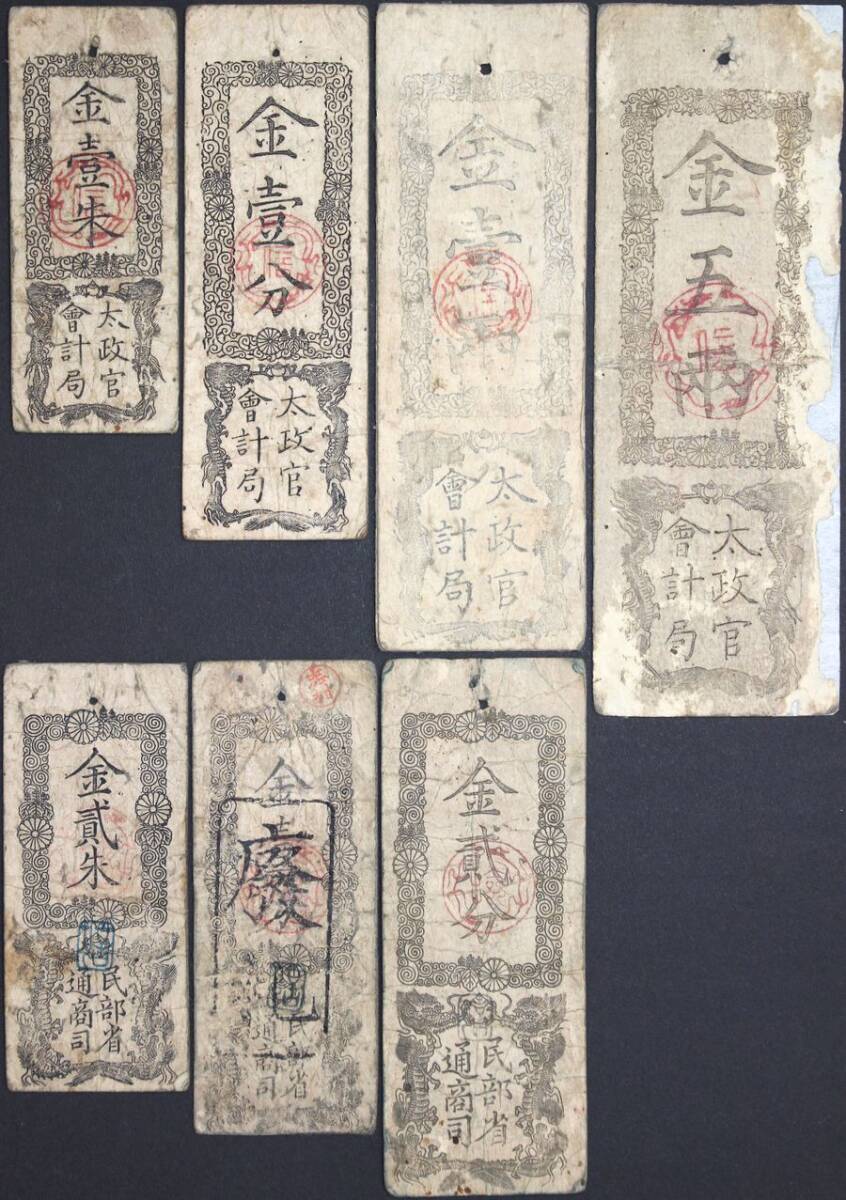 金壹朱
太政官
會計局
金壹分
太政官
會計局
金壹兩
太政官
會計局
金五兩
太政官
會計局
金貳朱
民部省
通商司
金
廢
民部省
通商司
金貳分
民部省
通商司